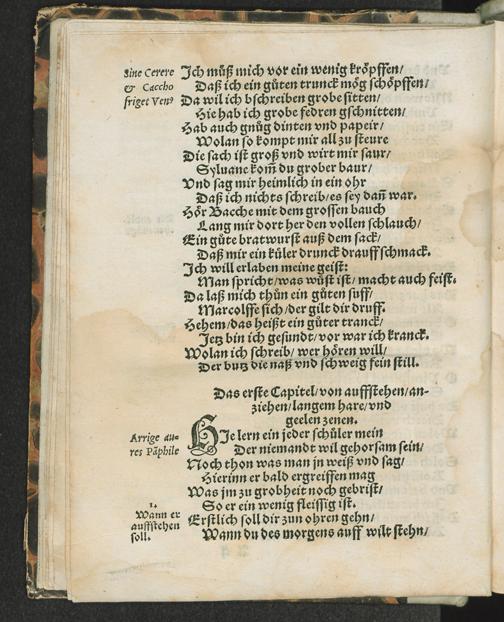 Sine Cerere
& Caccho
friget Ven⁹
Ich můß mich vor ein wenig kröpffen/
Daß ich ein gůten trunck mög schöpffen/
Da wil ich bschreiben grobe sitten/
Hie hab ich grobe fedren gschnitten/
Hab auch gnůg dinten vnd papeir/
Wolan so kompt mir all zu steure
Die sach ist groß vnd wirt mir saur/
Syluane kom̃ du grober baur/
Vnd sag mir heimlich in ein ohr
Daß ich nichts schreib/es sey dañ war.
Hör Bacche mit dem grossen bauch
Lang mir dort her den vollen schlauch/
Ein gůte bratwurst auß dem sack/
Daß mir ein küler drunck drauff schmack.
Ich will erlaben meine geist:
Man spricht/was wůst ist/ macht auch feist.
Da laß mich thůn ein gůten suff/
Marcolffe sich/der gilt dir druff.
Hehem/das heißt ein gůter tranck/
Jetz bin ich gesundt/vor war ich kranck.
Wolan ich schreib/wer hören will/
Der butz die naß vnd schweig fein still.
Das erste Capitel/von auffstehen/an-
ziehen/langem hare/vnd
geelen zenen.
Arrige au-
res Pāphile
HIe lern ein jeder schůler mein
Der niemandt wil gehorsam sein/
Noch thon was man jn weiß vnd sag/
Hierinn er bald ergreiffen mag
Was jm zu grobheit noch gebrist/
So er ein wenig fleissig ist.
1.
Wann er
auffstehen
soll.
Erstlich soll dir zun ohren gehn/
Wann du des morgens auff wilt stehn/